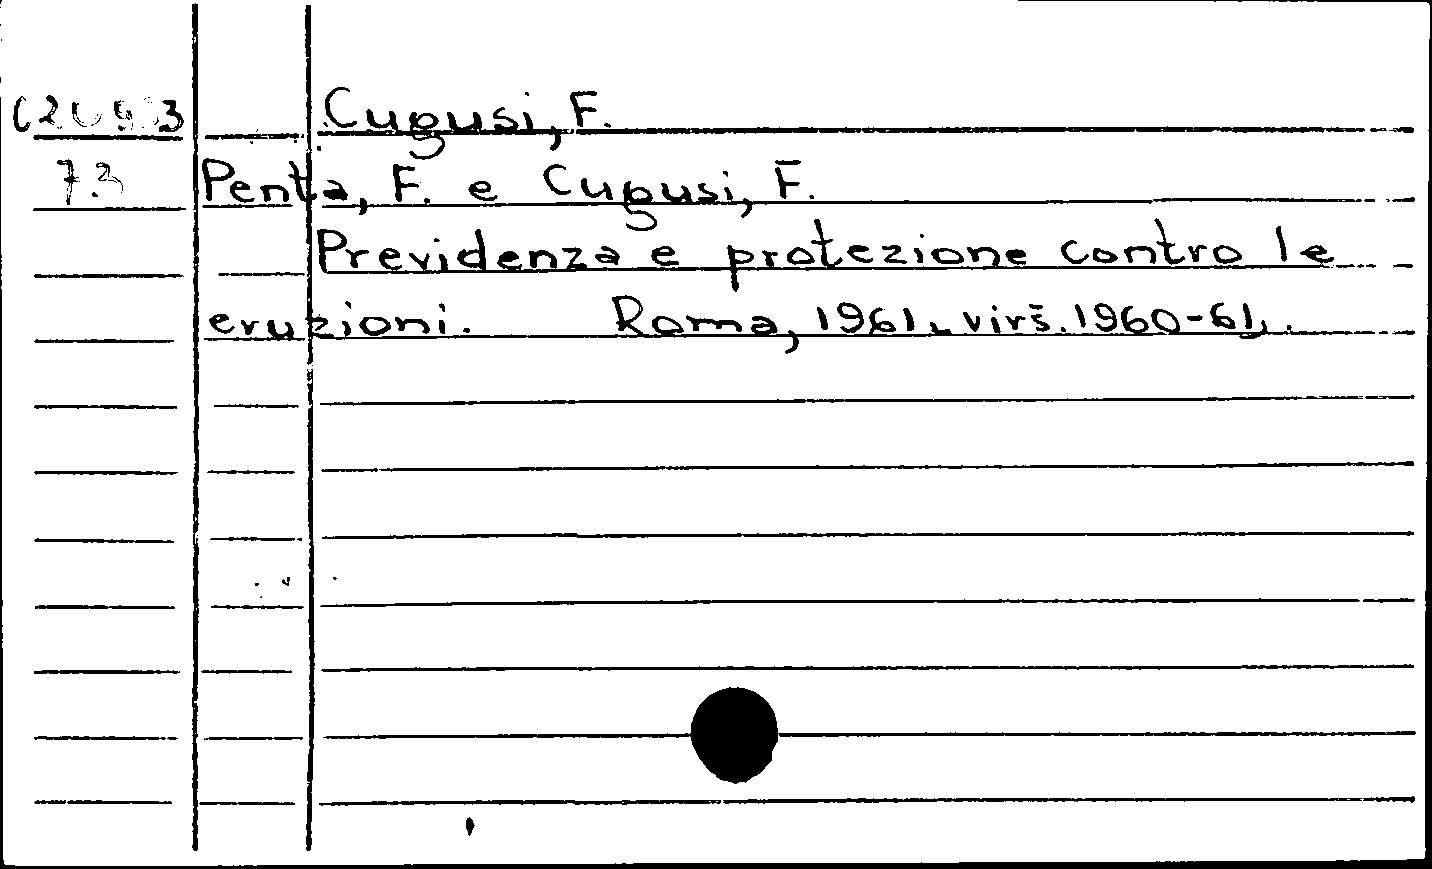 Cugusi, F.
7.3 Penta, F. e Cugusi, F.
Previdenza e protezione contro le
eruzioni. Roma, 1961. virš. 1960-61.